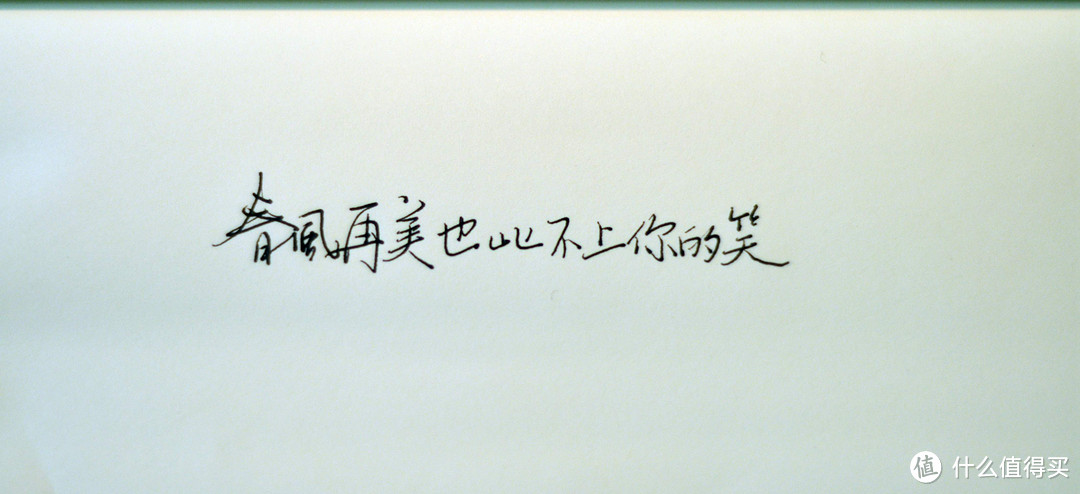 春風再美也比不上你的笑
值 什么值得买